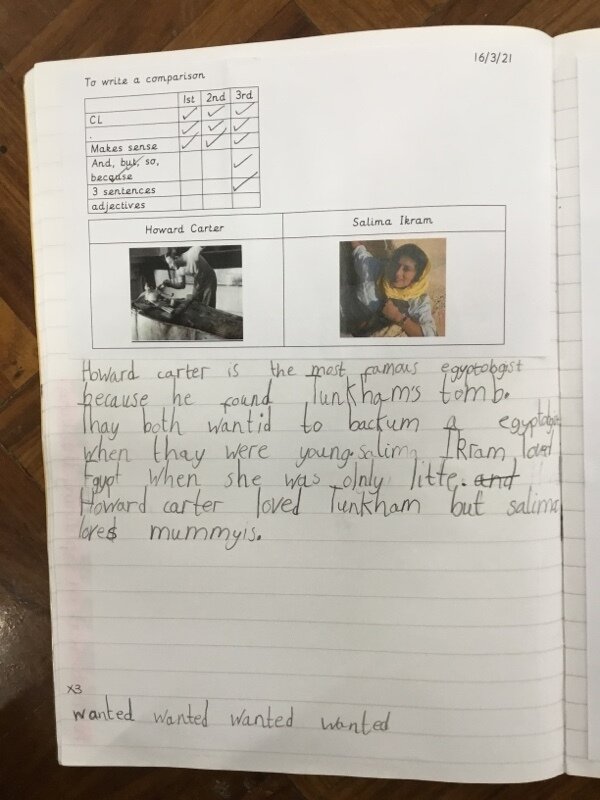 16/3/21
To write a comparison
1st 2nd 3rd
CL
.
Makes sense
And, but, so,
because
3 sentences
adjectives
Howard Carter Salima Ikram
Howard carter is the most famous egyptologist
because he found Tunkham's tomb.
thay both wantid to backum a egyptologist
when thay were young. salima Ikram loved
Egypt when she was olnly litte. and
Howard carter loved Tunkham but salima
loves mummyis.
X3
wanted wanted wanted wanted